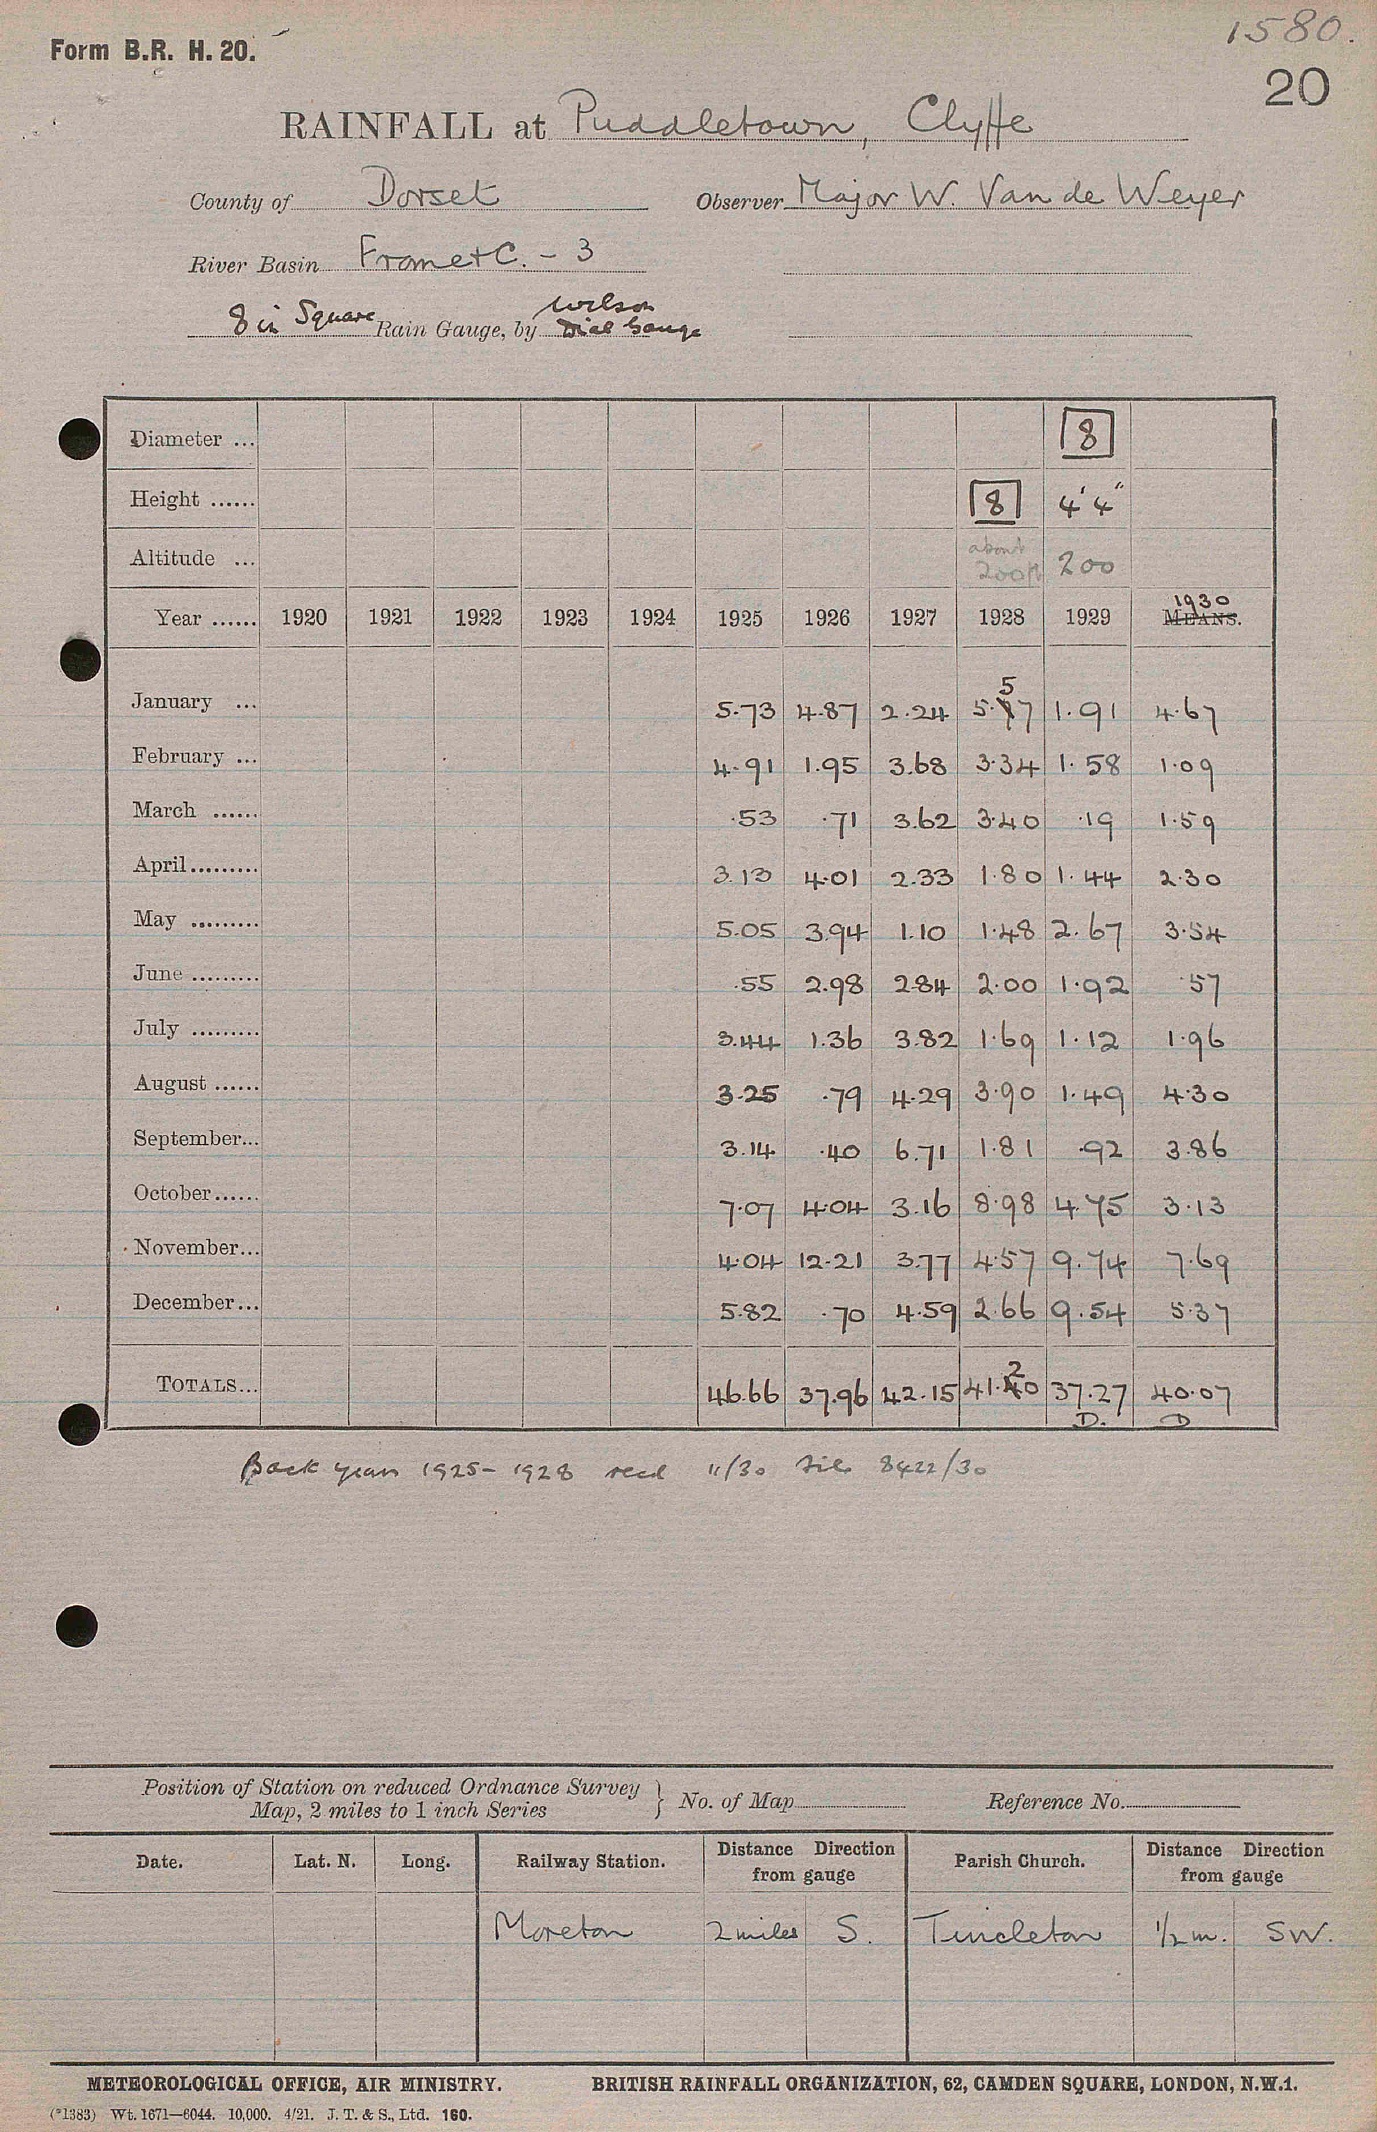 1580.
Form B.R. H. 20.
20
RAINFALL at Puddletown, Clyffe
County of Dorset Observer Major W. Van de Weyer
River Basin Frome & C. - 3
8 in Square Rain Gauge, by Wilson Dial Gauge
Diameter ... 8
Height ...... 8 4' 4"
Altitude ... about 200ft 200
Year ...... 1920 1921 1922 1923 1924 1925 1926 1927 1928 1929 MEANS. 1930
January ... 5.73 4.87 2.24 5.57 1.91 4.67
February ... 4.91 1.95 3.68 3.34 1.58 1.09
March ...... .53 .71 3.62 3.40 .19 1.59
April......... 3.13 4.01 2.33 1.80 1.44 2.30
May ......... 5.05 3.94 1.10 1.48 2.67 3.54
June ......... .55 2.98 2.84 2.00 1.92 .57
July ......... 3.44 1.36 3.82 1.69 1.12 1.96
August ...... 3.25 .79 4.29 3.90 1.49 4.30
September... 3.14 .40 6.71 1.81 .92 3.86
October...... 7.07 4.04 3.16 8.98 4.75 3.13
November... 4.04 12.21 3.77 4.57 9.74 7.69
December... 5.82 .70 4.59 2.66 9.54 5.37
TOTALS... 46.66 37.96 42.15 41.20 37.27 40.07
D. D
Back years 1925-1928 recd 11/30 file 8422/30
Position of Station on reduced Ordnance Survey
Map, 2 miles to 1 inch Series } No. of Map Reference No.
Date. Lat. N. Long. Railway Station. Distance Direction from gauge Parish Church. Distance Direction from gauge
Moreton 2 miles S. Tincleton 1/2 m. SW.
METEOROLOGICAL OFFICE, AIR MINISTRY. BRITISH RAINFALL ORGANIZATION, 62, CAMDEN SQUARE, LONDON, N.W.1.
(*1383) Wt. 1671—6044. 10,000. 4/21. J. T. & S., Ltd. 160.